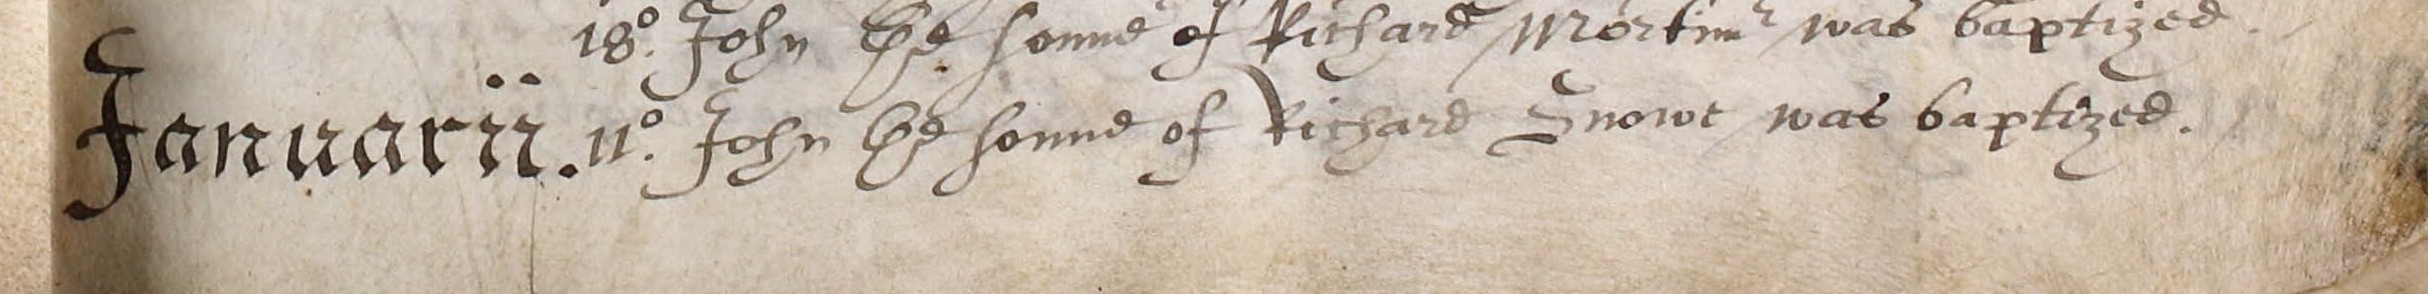 18º. John the sonne of Richard Mortimr was baptized.
Januarii. 11º. John the sonne of Richard Snowe was baptized.